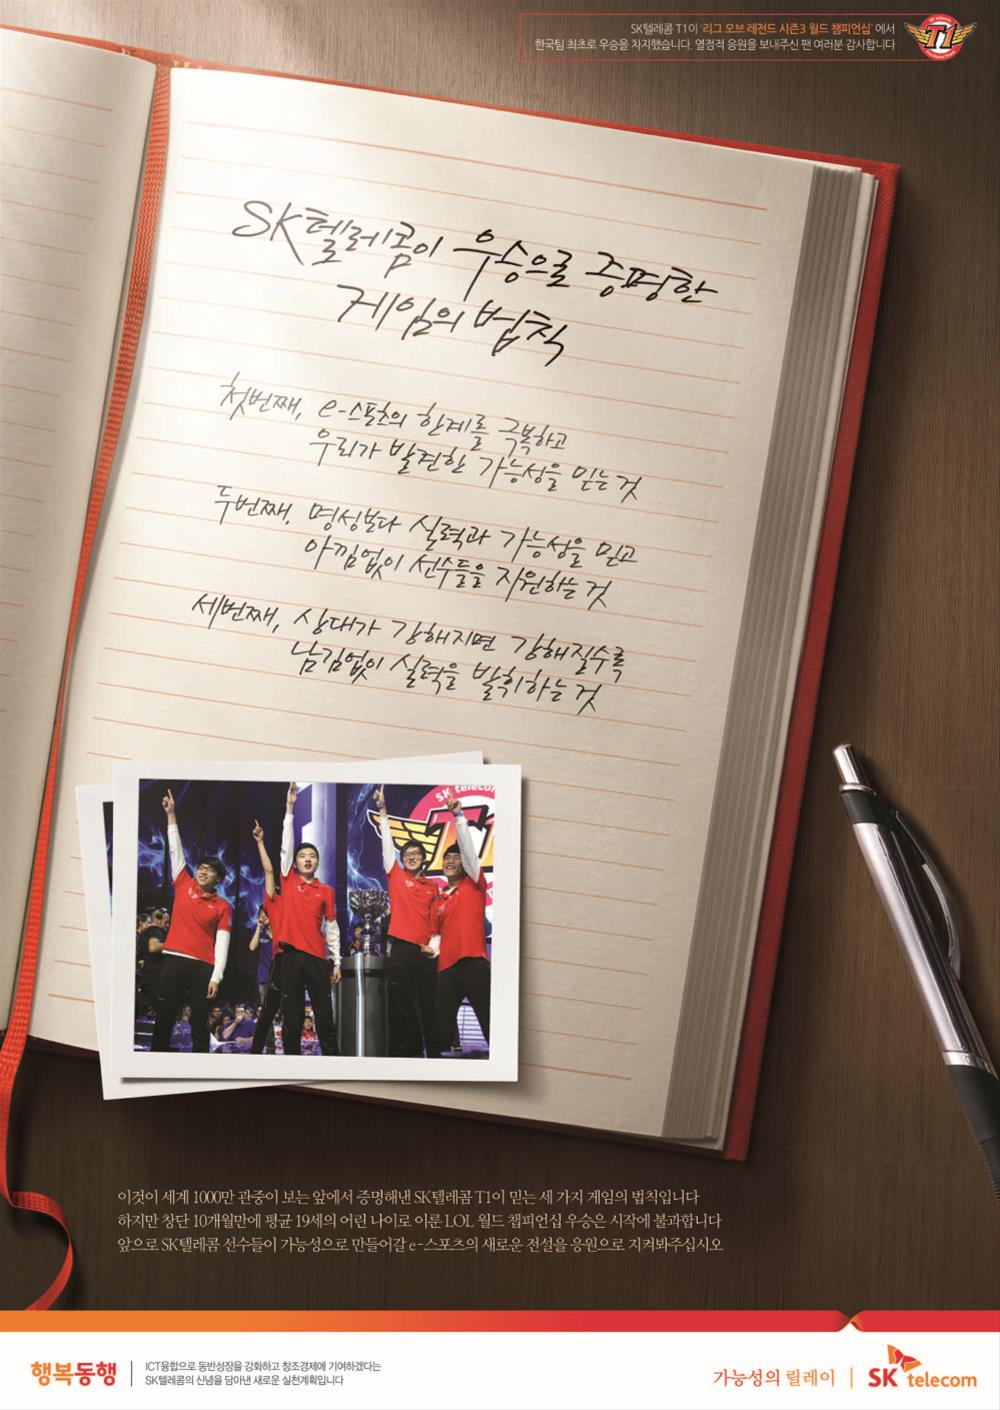 SK텔레콤 T1이 '리그 오브 레전드 시즌3 월드 챔피언십' 에서
한국팀 최초로 우승을 차지했습니다. 열정적 응원을 보내주신 팬 여러분 감사합니다
SK telecom
T1
SK텔레콤이 우승으로 증명한
게임의 법칙
첫번째, e-스포츠의 한계를 극복하고
우리가 발견한 가능성을 믿는 것
두번째, 명성보다 실력과 가능성을 믿고
아낌없이 선수들을 지원하는 것
세번째, 상대가 강해지면 강해질수록
남김없이 실력을 발휘하는 것
SK telecom
T1
이것이 세계 1000만 관중이 보는 앞에서 증명해낸 SK텔레콤 T1이 믿는 세 가지 게임의 법칙입니다
하지만 창단 10개월만에 평균 19세의 어린 나이로 이룬 LOL 월드 챔피언십 우승은 시작에 불과합니다
앞으로 SK텔레콤 선수들이 가능성으로 만들어갈 e-스포츠의 새로운 전설을 응원으로 지켜봐주십시오
행복동행
ICT융합으로 동반성장을 강화하고 창조경제에 기여하겠다는
SK텔레콤의 신념을 담아낸 새로운 실천계획입니다
가능성의 릴레이
SK telecom